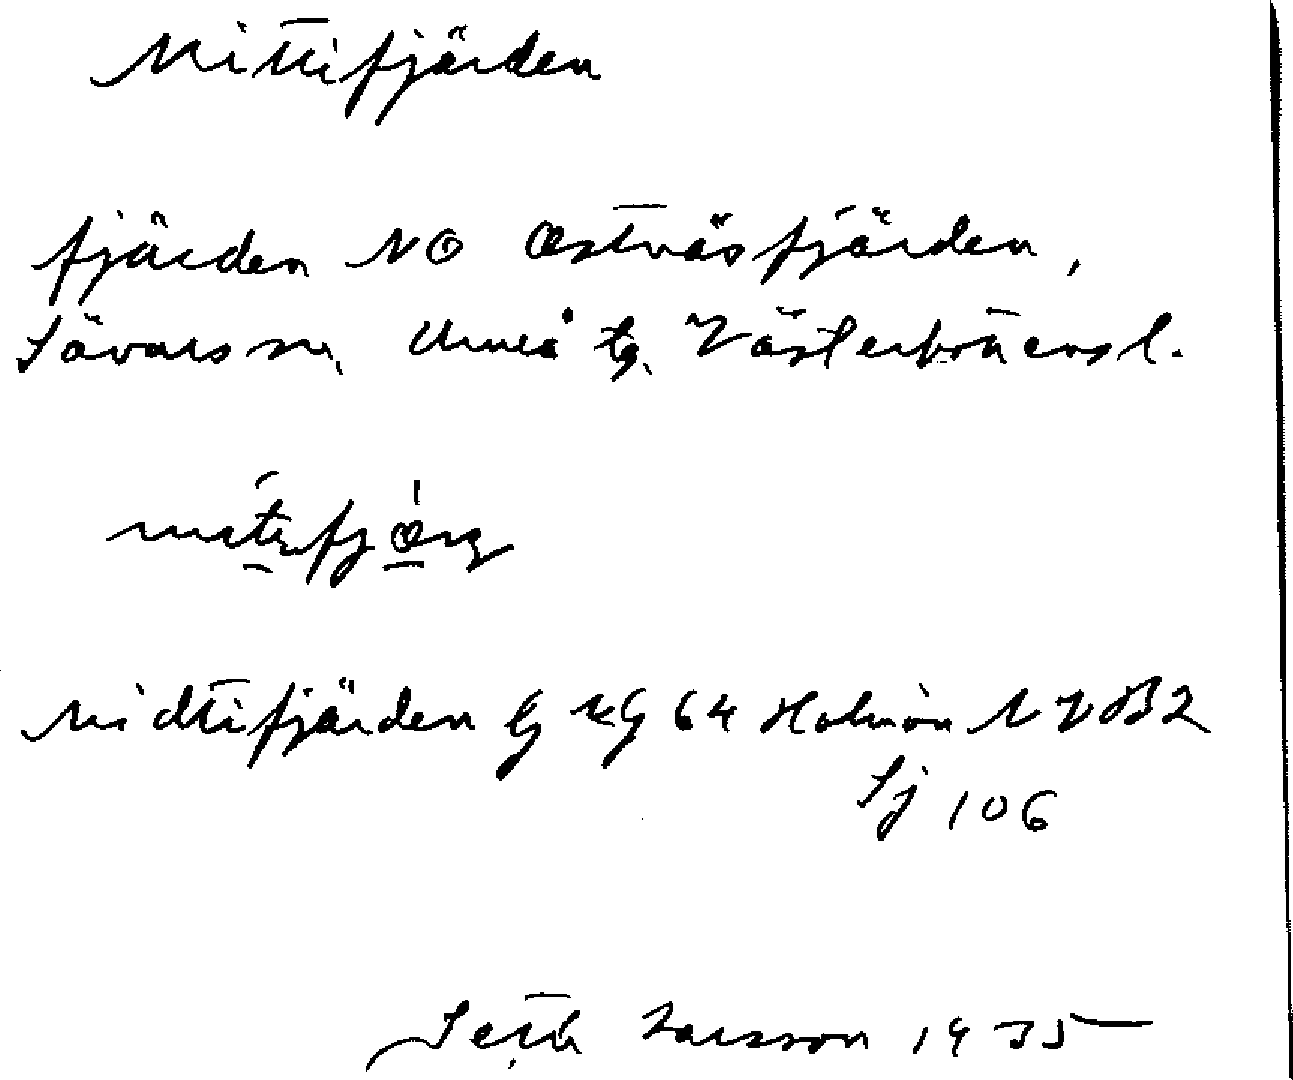 Mittifjärden
fjärden NO Östnäsfjärden,
Sävars sn, Umeå tg, Västerbottens l.
Midtifjärden Gg KG 64 Holmön NV B2
Sj 106
Seth Larsson 1935